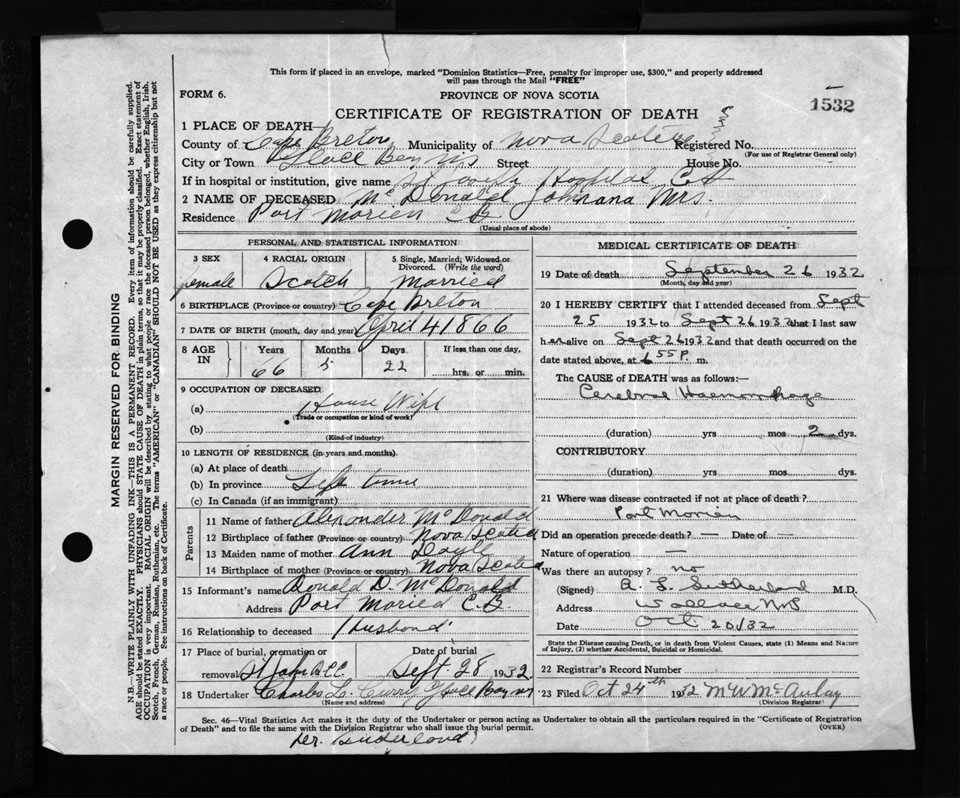 This form if placed in an envelope, marked "Dominion Statistics—Free, penalty for improper use, $300," and properly addressed
will pass through the Mail "FREE"
FORM 6. PROVINCE OF NOVA SCOTIA
1532
CERTIFICATE OF REGISTRATION OF DEATH
1 PLACE OF DEATH—
County of Cape Breton Municipality of Nova Scotia Registered No.
(For use of Registrar General only)
City or Town Glace Bay NS Street House No.
If in hospital or institution, give name St Joseph Hospital C.B.
2 NAME OF DECEASED McDonald Johnana Mrs.
Residence Port Morien C.B.
(Usual place of abode)
PERSONAL AND STATISTICAL INFORMATION
3 SEX 4 RACIAL ORIGIN 5 Single, Married, Widowed or
Divorced. (Write the word)
female Scotch Married
6 BIRTHPLACE (Province or country) Cape Breton
7 DATE OF BIRTH (month, day and year) April 4 1866
8 AGE IN Years Months Days If less than one day,
66 5 22 hrs. or min.
9 OCCUPATION OF DECEASED
(a) House Wife
(Trade or occupation or kind of work)
(b)
(Kind of industry)
10 LENGTH OF RESIDENCE (in years and months)
(a) At place of death
(b) In province Life time
(c) In Canada (if an immigrant)
Parents
11 Name of father Alexander McDonald
12 Birthplace of father (Province or country) Nova Scotia
13 Maiden name of mother Ann Doyle
14 Birthplace of mother (Province or country) Nova Scotia
15 Informant's name Donald D. McDonald
Address Port Moried C.B.
16 Relationship to deceased Husband
17 Place of burial, cremation or Date of burial
removal St John Sept. 28 1932
18 Undertaker Charles L. Curry Glace Bay NS
(Name and address)
MEDICAL CERTIFICATE OF DEATH
19 Date of death September 26 1932
(Month, day and year)
20 I HEREBY CERTIFY that I attended deceased from Sept
25 1932 to Sept 26 1932 that I last saw
her alive on Sept 26 1932 and that death occurred on the
date stated above, at 6 55 P. m.
The CAUSE of DEATH was as follows:—
Cerebral Haemorrhage
(duration) yrs mos 2 dys.
CONTRIBUTORY
(duration) yrs. mos. dys.
21 Where was disease contracted if not at place of death?
Port Morien
Did an operation precede death? — Date of —
Nature of operation —
Was there an autopsy? no
(Signed) A. L. Sutherland M.D.
Address Wallace NS
Date Oct 20/32
State the Disease causing Death, or in death from Violent Causes, state (1) Means and Nature
of Injury, (2) whether Accidental, Suicidal or Homicidal.
22 Registrar's Record Number
23 Filed Oct 24th 1932 M W McAulay
(Division Registrar)
Sec. 46—Vital Statistics Act makes it the duty of the Undertaker or person acting as Undertaker to obtain all the particulars required in the "Certificate of Registration
of Death" and to file the same with the Division Registrar who shall issue the burial permit. (OVER)
Dr. Suderland
MARGIN RESERVED FOR BINDING
N.B.—WRITE PLAINLY WITH UNFADING INK—THIS IS A PERMANENT RECORD. Every item of information should be carefully supplied.
AGE should be stated EXACTLY. PHYSICIANS should STATE CAUSE OF DEATH in plain terms, so that it may be properly classified. Exact statement of
OCCUPATION is very important. RACIAL ORIGIN will be described by stating to what people or race the deceased person belonged, whether English, Irish,
Scotch, French, German, Russian, Ruthenian, etc. The terms "AMERICAN" or "CANADIAN" SHOULD NOT BE USED as they express citizenship but not
a race or people. See instructions on back of Certificate.